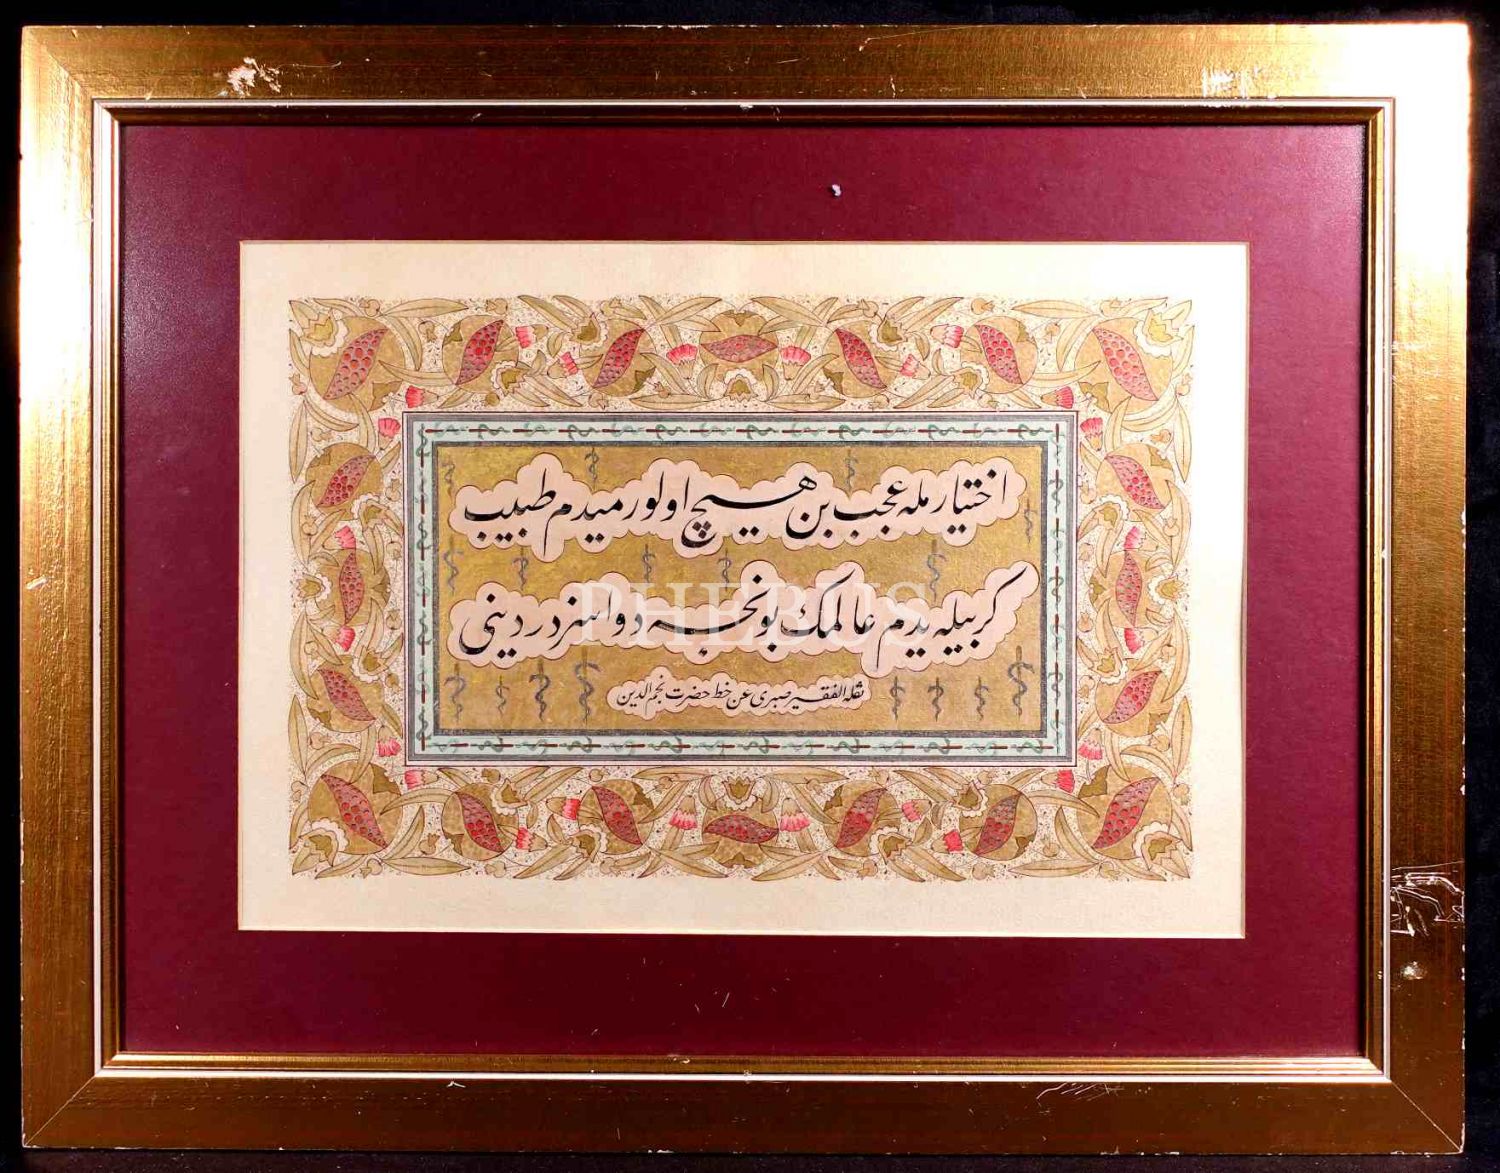 اختيارمله عجب بن هيچ اولورميدم طبيب
گر بيله يدم عالمك بونجه دواسز دردينی
نقله الفقير صبری عن خط حضرت نجم الدين
PHEBUS